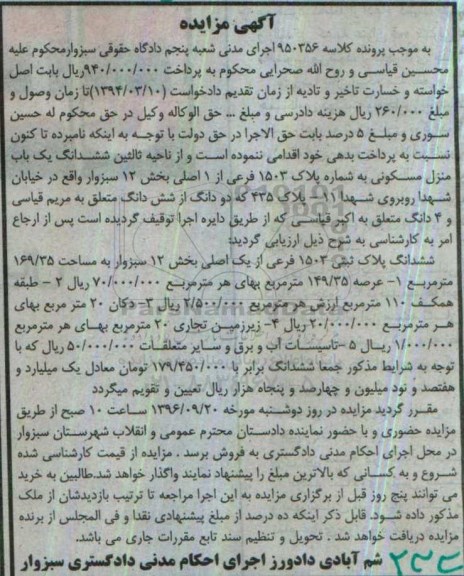 آگهی مزایده
به موجب پرونده کلاسه ۹۵۰۳۵۶ اجرای مدنی شعبه پنجم دادگاه حقوقی سبزوارمحکوم علیه
محسین قیاسی و روح الله صحرایی محکوم به پرداخت ۹۴۰/۰۰۰/۰۰۰ریال بابت اصل
خواسته و خسارت تاخیر و تادیه از زمان تقدیم دادخواست (۱۳۹۴/۰۳/۱۰)تا زمان وصول و
مبلغ ۲۶۰/۰۰۰ ریال هزینه دادرسی و مبلغ ... حق الوکاله وکیل در حق محکوم له حسین
سوری و مبلغ ۵ درصد بابت حق الاجرا در حق دولت با توجه به اینکه نامبرده تا کنون
نسبت به پرداخت بدهی خود اقدامی ننموده است و از ناحیه ثالثین ششدانگ یک باب
منزل مسکونی به شماره پلاک ۱۵۰۳ فرعی از ۱ اصلی بخش ۱۲ سبزوار واقع در خیابان
شهدا روبروی شهدا ۱۹ – پلاک ۴۳۵ که دو دانگ از شش دانگ متعلق به مریم قیاسی
و ۴ دانگ متعلق به اکبر قیاسی که از طریق دایره اجرا توقیف گردیده است پس از ارجاع
امر به کارشناسی به شرح ذیل ارزیابی گردید:
ششدانگ پلاک ثبتی ۱۵۰۳ فرعی از یک اصلی بخش ۱۲ سبزوار به مساحت ۱۶۹/۳۵
مترمربع ۱- عرصه ۱۴۹/۳۵ مترمربع بهای هر مترمربع ۷۰/۰۰۰/۰۰۰ ریال ۲ – طبقه
همکف ۱۱۰ مترمربع ارزش هر مترمربع ۲/۵۰۰/۰۰۰ ریال ۳- دکان ۲۰ متر مربع بهای
هر مترمربع ۲۰/۰۰۰/۰۰۰ ریال ۴- زیرزمین تجاری ۲۰ مترمربع بهای هر مترمربع
۱/۰۰۰/۰۰۰ ریال ۵ –تاسیسات آب و برق و سایر متعلقات ۵۰/۰۰۰/۰۰۰ ریال که با
توجه به شرایط مذکور جمعا ششدانگ برابر با ۱۷۹/۴۵۰/۰۰۰ تومان معادل یک میلیارد و
هفتصد و نود میلیون و چهارصد و پنجاه هزار ریال تعیین و تقویم میگردد
مقرر گردید مزایده در روز دوشنبه مورخه ۱۳۹۶/۰۹/۲۰ ساعت ۱۰ صبح از طریق
مزایده حضوری و با حضور نماینده دادستان محترم عمومی و انقلاب شهرستان سبزوار
در محل اجرای احکام مدنی دادگستری به فروش برسد . مزایده از قیمت کارشناسی شده
شروع و به کسانی که بالاترین مبلغ را پیشنهاد نمایند واگذار خواهد شد.طالبین به خرید
می توانند پنج روز قبل از برگزاری مزایده به این اجرا مراجعه تا ترتیب بازدیدشان از ملک
مذکور داده شود. قابل ذکر اینکه ده درصد از مبلغ پیشنهادی نقدا و فی المجلس از برنده
مزایده دریافت خواهد شد . تحویل و تنظیم سند تابع مقررات جاری می باشد.
شم آبادی دادورز اجرای احکام مدنی دادگستری سبزوار